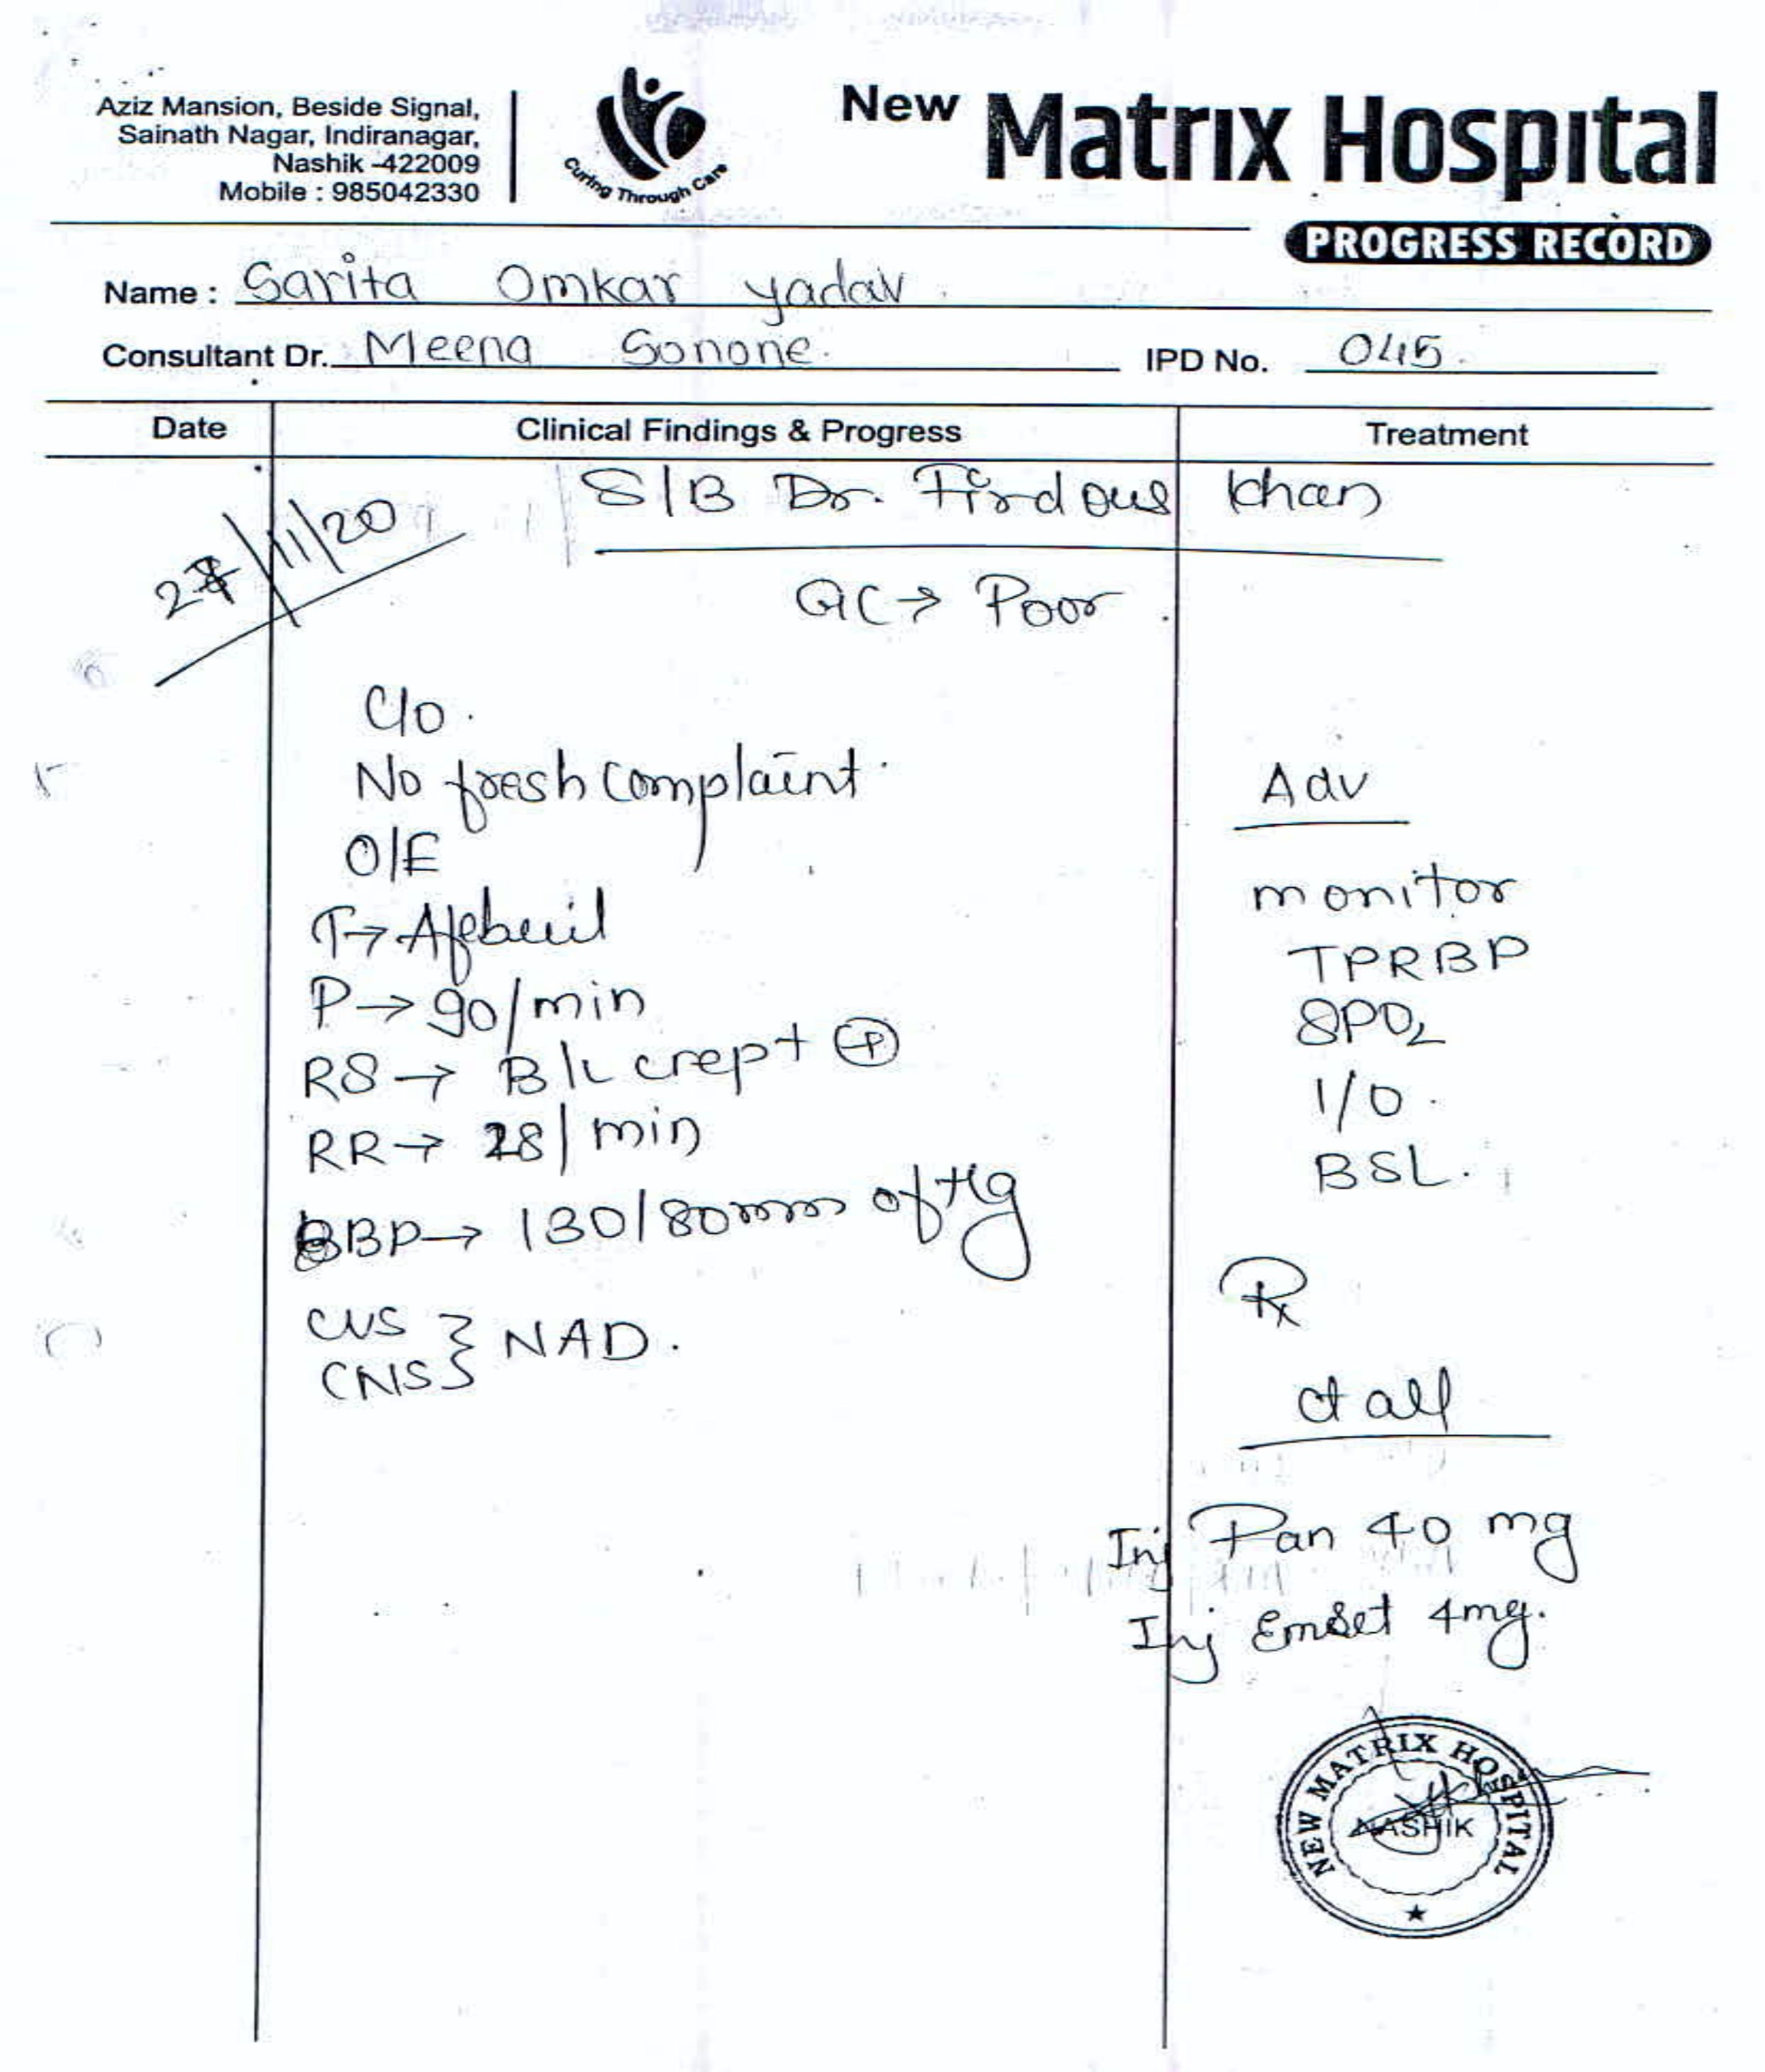 Aziz Mansion, Beside Signal,
Sainath Nagar, Indiranagar,
Nashik -422009
Mobile : 985042330
Curing Through Care
New Matrix Hospital
PROGRESS RECORD
Name : Sarita Omkar yadav.
Consultant Dr. Meena Sonone. IPD No. 045.
Date Clinical Findings & Progress Treatment
S/B Dr. Firdous Khan
/11/20
GC → Poor.
C/O.
No fresh complaint.
O/E
T → Afebuil
P → 90/min
RS → B/L crept ⊕
RR → 28/min
BP → 130/80mm of Hg
CVS
CNS } NAD.
Adv
monitor
TPRBP
SPO₂
I/O.
BSL.
Rx
ct all
Inj Pan 40 mg
Inj Emset 4mg.
NEW MATRIX HOSPITAL
NASHIK